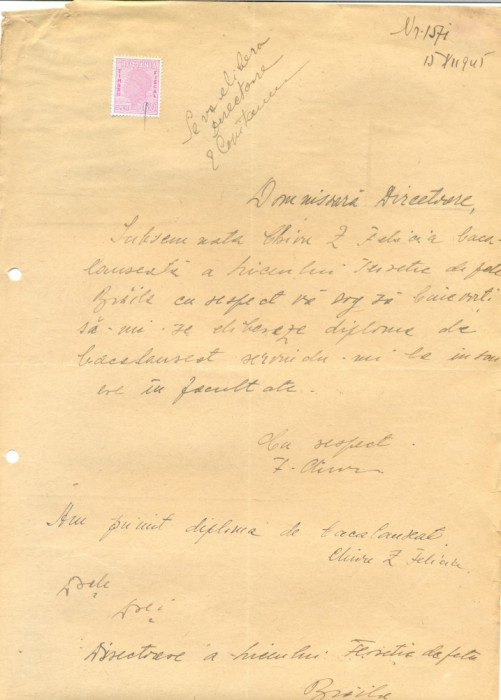 Nr. 1571
15
TIMBRU FISCAL
Se va elibera
Directoare
Domnișoară Directoare,
Subsemnata Chivu Z Felicia baca-
laureată a Liceului Teoretic de fete
Brăila cu respect vă rog să binevoiți
să-mi-se elibereze diploma de
bacalaureat servindu-mi la înscri
ere în facultate.
Cu respect.
F. Chivu
Am primit diploma de bacalaureat.
Chivu Z Felicia.
D-sale
D-rei
Directoare a Liceului Teoretic de fete
Brăila